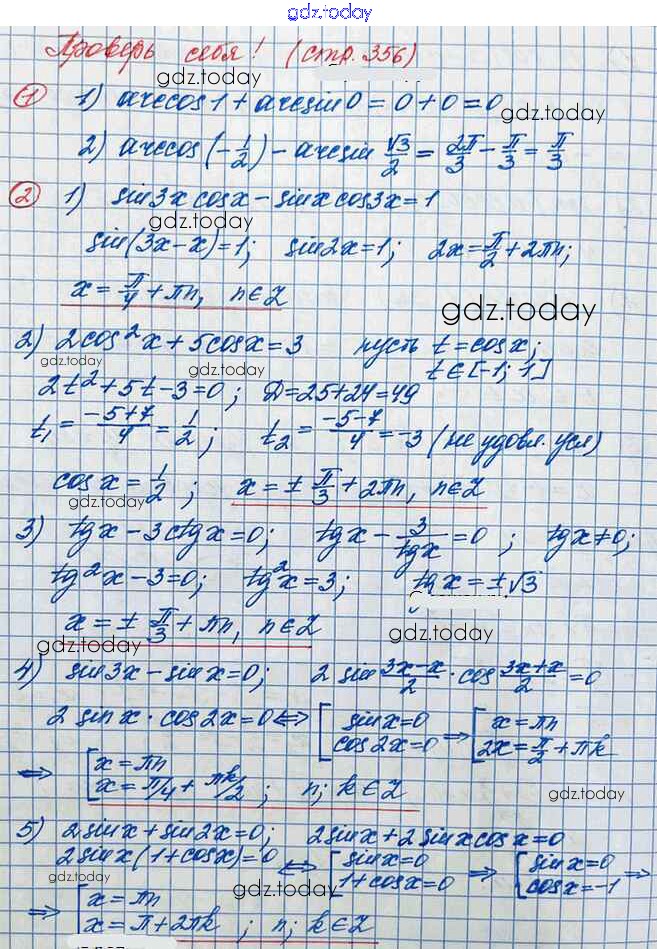 gdz.today
Проверь себя! (стр. 356)
gdz.today
① 1) arccos 1 + arcsin 0 = 0 + 0 = 0
gdz.today
2) arccos(-1/2) - arcsin √3/2 = 2π/3 - π/3 = π/3
② 1) sin3x cosx - sinx cos3x = 1
gdz.today
sin(3x-x)=1; sin2x=1; 2x=π/2+2πn;
x = π/4 + πn, n∈Z
gdz.today
2) 2cos²x + 5cosx = 3 пусть t = cosx;
gdz.today
t∈[-1; 1]
2t²+5t-3=0; D=25+24=49
t₁ = (-5+7)/4 = 1/2; t₂ = (-5-7)/4 = -3 (не удовл. усл)
cosx = 1/2; x = ± π/3 + 2πn, n∈Z
gdz.today
3) tgx - 3ctgx = 0; tgx - 3/tgx = 0; tgx≠0;
gdz.today
tg²x - 3 = 0; tg²x = 3; tgx = ±√3
x = ± π/3 + πn, n∈Z
gdz.today
gdz.today
4) sin3x - sinx = 0; 2 sin (3x-x)/2 · cos (3x+x)/2 = 0
2 sinx · cos2x = 0 ⇔ [ sinx=0 cos2x=0 ⇒ [ x=πn 2x=π/2+πk
⇒ [ x=πn x=π/4+πk/2; n; k∈Z
gdz.today
5) 2sinx + sin2x = 0; 2sinx + 2sinx cosx = 0
2sinx(1+cosx)=0 ⇔ [ sinx=0 1+cosx=0 ⇒ [ sinx=0 cosx=-1 ⇒
gdz.today
gdz.today
⇒ [ x=πn x=π+2πk; n; k∈Z